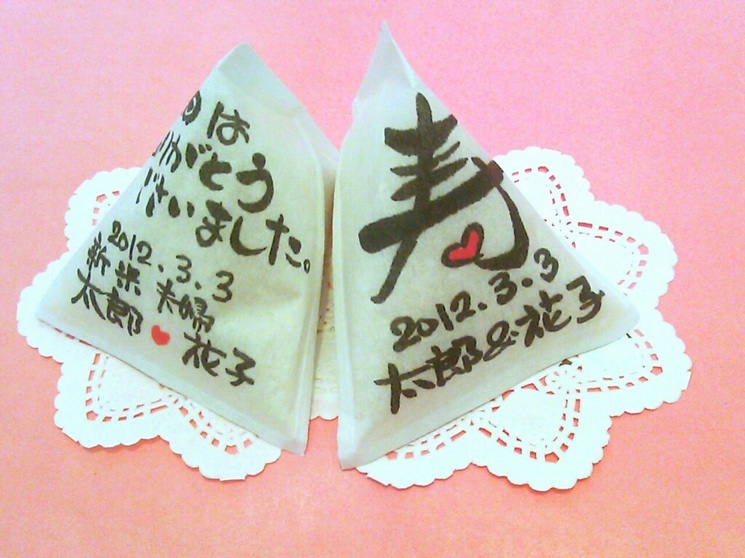 日は
がとう
ざいました。
2012.3.3
新米夫婦
太郎♥花子
寿
2012.3.3
太郎&花子